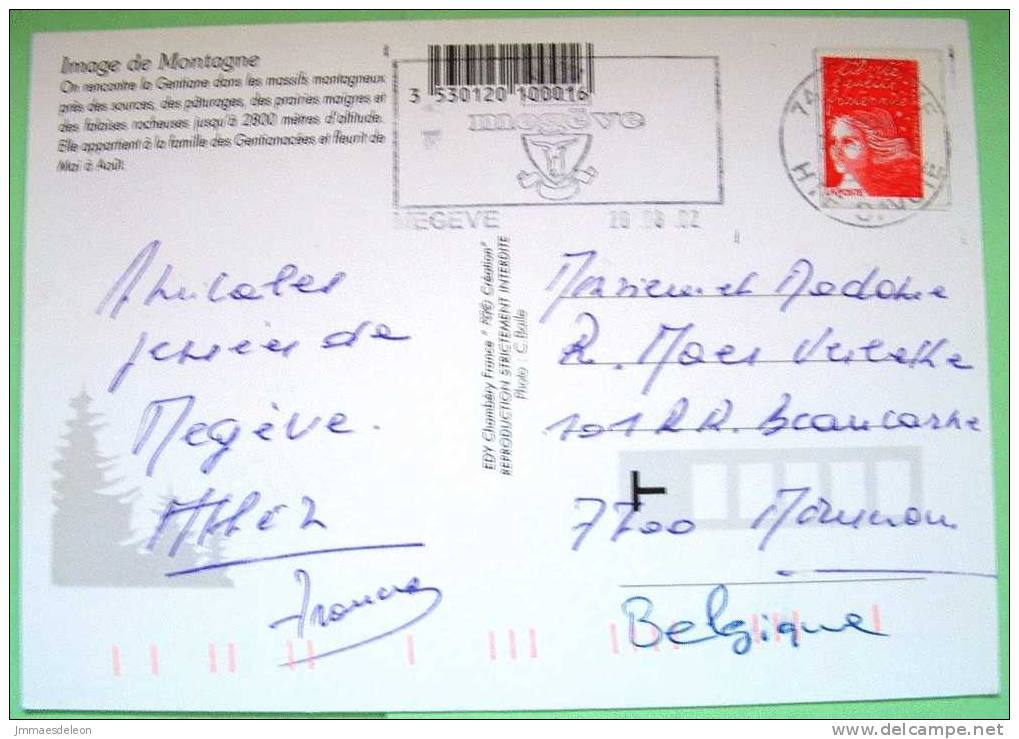 Image de Montagne
On rencontre la Gentiane dans les massifs montagneux
près des sources, des pâturages, des prairies maigres et
des falaises rocheuses jusqu'à 2800 mètres d'altitude.
Elle appartient à la famille des Gentianacées et fleurit de
Mai à Août.
3 530120 100016
megève
MEGEVE 20 08 02
74
Amicales
pensées de
Megève.
EDY Chambéry France
Création"
REPRODUCTION STRICTEMENT INTERDITE
Photo : C. Baile
Monsieur et Madame
R. Maes
101 Beaucarne
T
7700 Mouscron
Belgique
jmmaesdeleon
www.delcampe.net